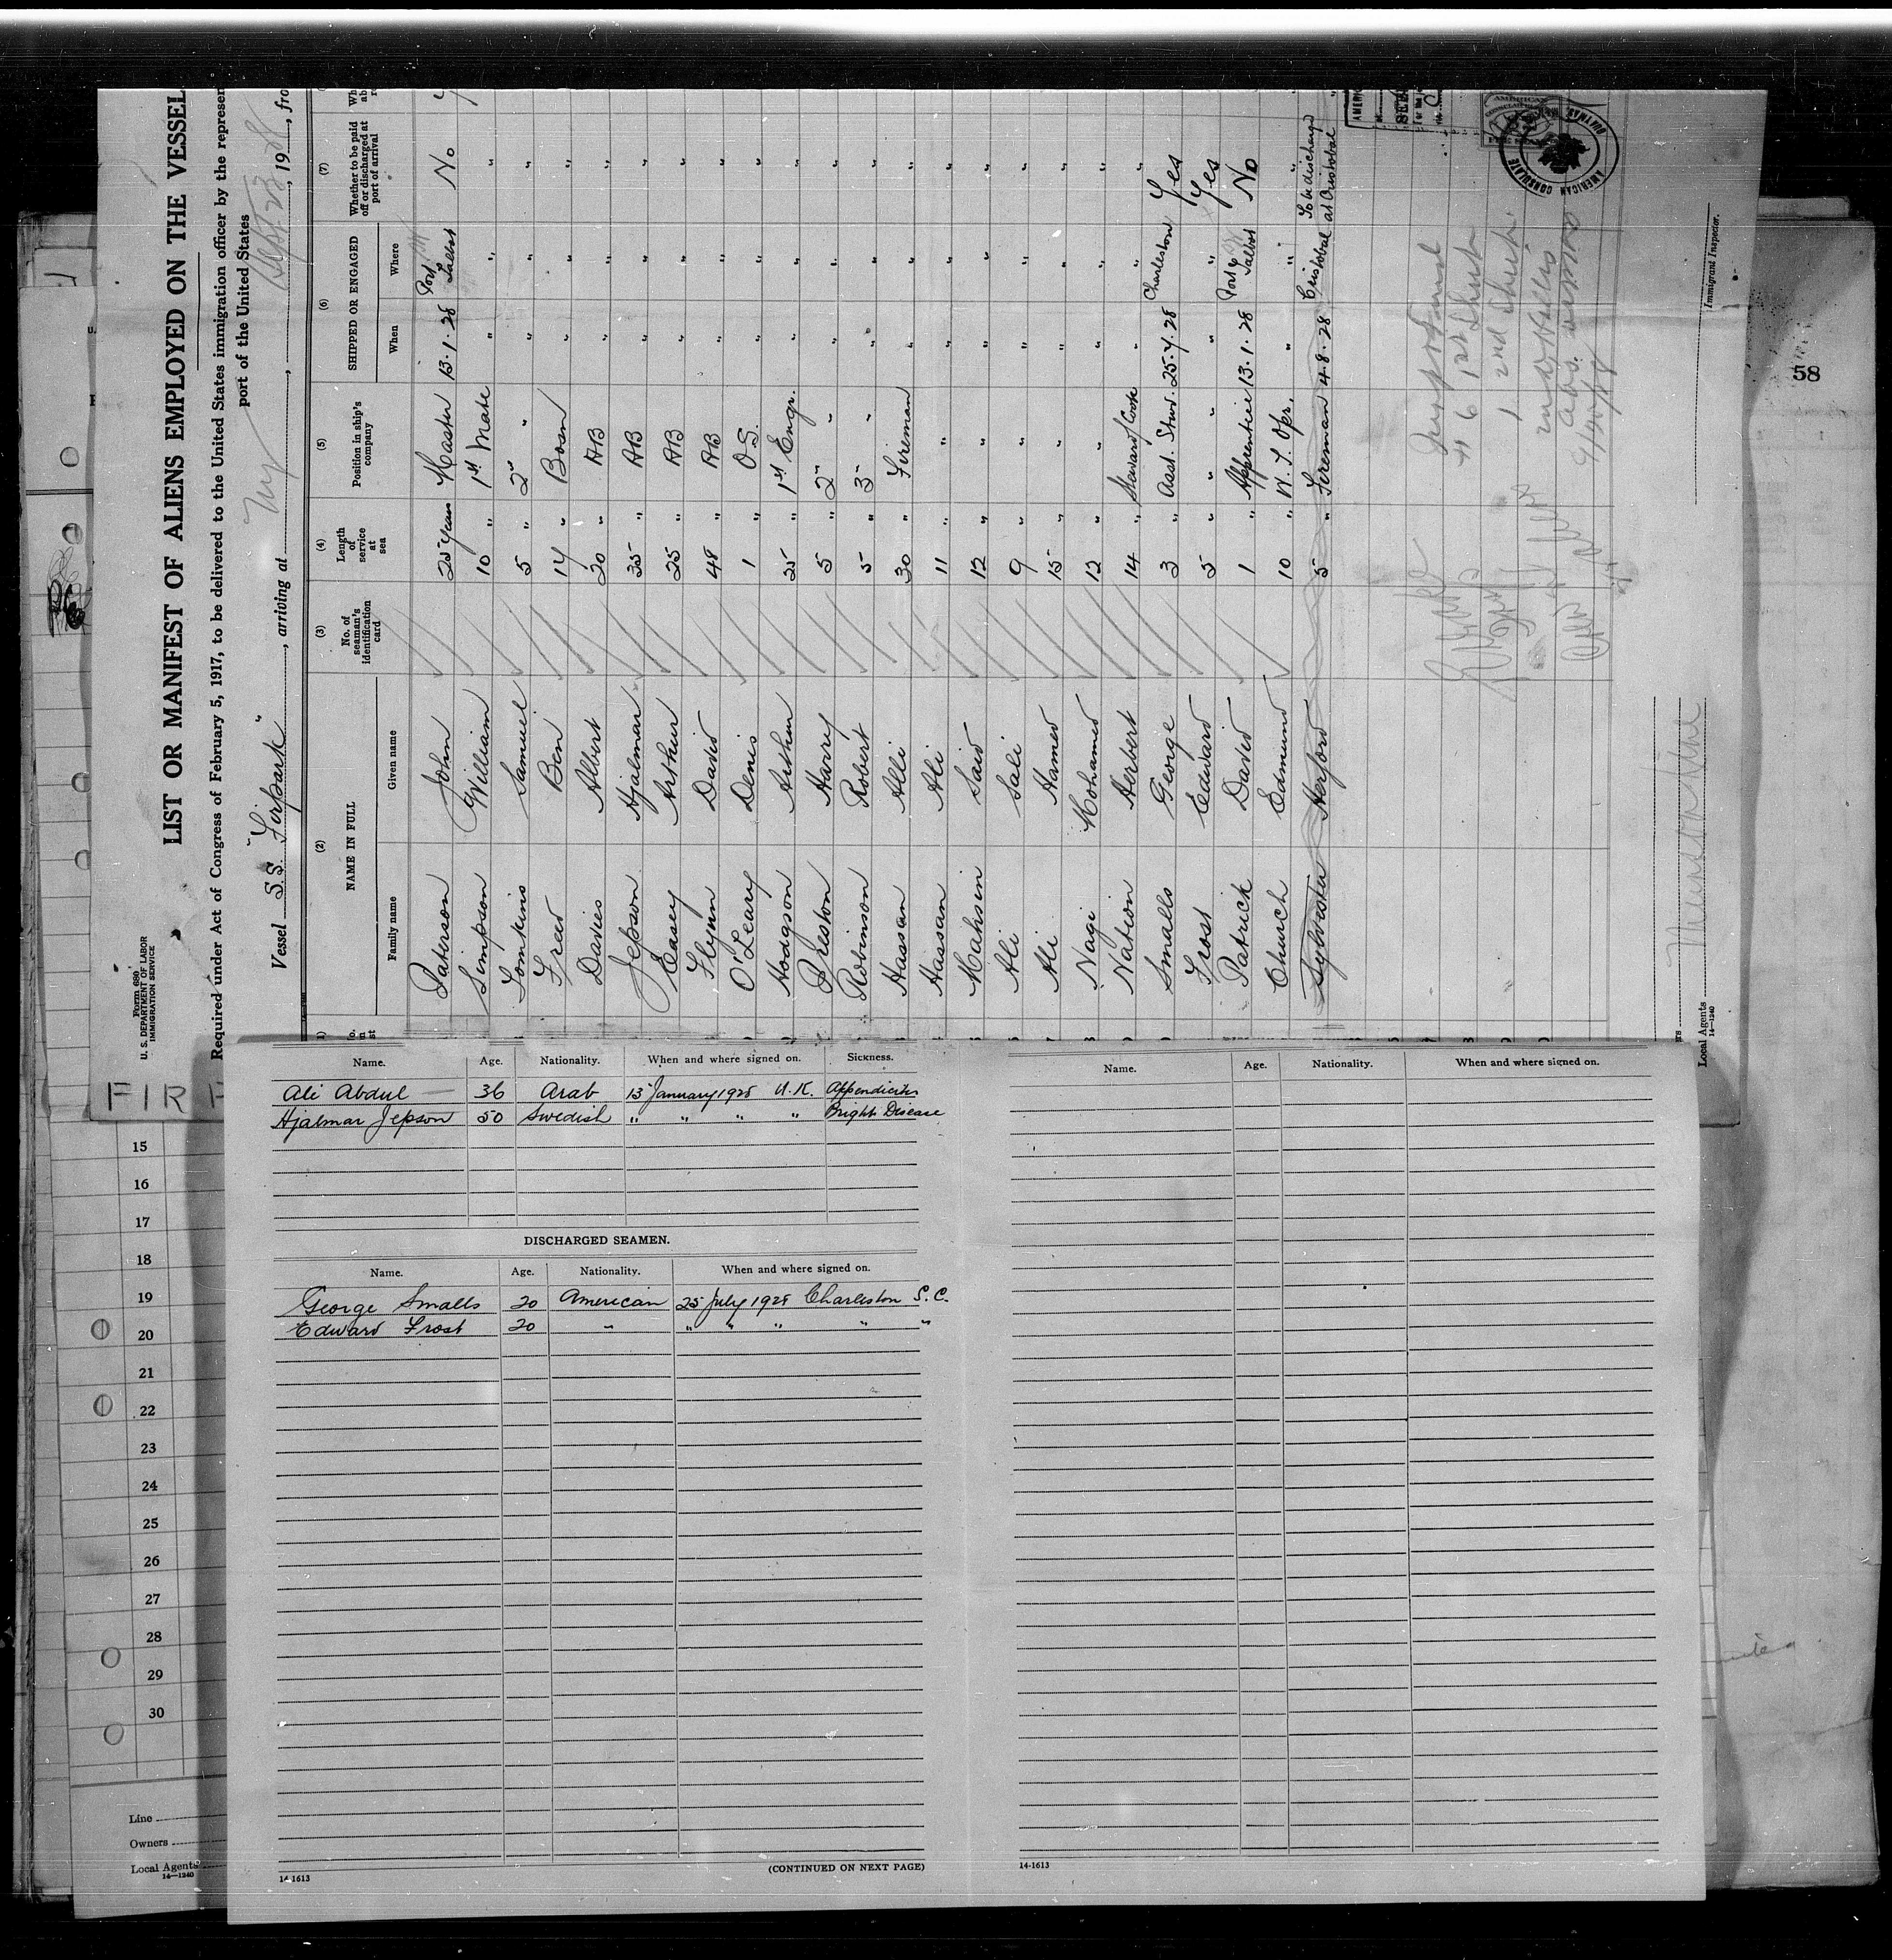 Form 680
U. S. DEPARTMENT OF LABOR
IMMIGRATION SERVICE
LIST OR MANIFEST OF ALIENS EMPLOYED ON THE VESSEL
Required under Act of Congress of February 5, 1917, to be delivered to the United States immigration officer by the represen
port of the United States
Vessel S.S. "Firpark", arriving at Ny, , 19, fro
(2) (3) (4) (5) (6) (7)
NAME IN FULL
Family name Given name
No. of seaman's identification card
Length of service at sea
Position in ship's company
SHIPPED OR ENGAGED
When Where
Whether to be paid off or discharged at port of arrival
Paterson John 25 years Master 13.1.28 Port Talbot No
Simpson William 10 " 1st Mate " " "
Tomkins Samuel 5 " 2" " " " "
Freed Ben 14 " Bosn " " "
Davies Albert 20 " AB " " "
Jepson Hjalmar 35 " AB " " "
Casey Arthur 25 " AB " " "
Flynn David 48 " AB " " "
O'Leary Denis 1 " O.S. " " "
Hodgson Arthur 25 " 1st Engr. " " "
Preston Harry 5 " 2" " " " "
Robinson Robert 5 " 3" " " " "
Hassan Alli 30 " Fireman " " "
Hassan Ali 11 " " " " "
Mahsin Said 12 " " " " "
Ali Sali 9 " " " " "
Ali Hamed 15 " " " " "
Nagi Mohamed 12 " " " " "
Nation Herbert 14 " Steward/Cook " " "
Smalls George 3 " Asst. Stwd. 25.7.28 Charleston Yes
Frost Edward 5 " " " " Yes
Patrick David 1 " Apprentice 13.1.28 Port Talbot No
Church Edmund 10 " W.T. Opr. " " "
Sylvester Herford 5 " Fireman 4.8.28 Cristobal To be discharged at Cristobal
AMERICAN CONSULATE
Immigrant Inspector.
Local Agents
14—1240
58
FIRP
Name. Age. Nationality. When and where signed on. Sickness.
Ali Abdul 36 Arab 13 January 1928 U.K. Appendicitis
Hjalmar Jepson 50 Swedish " " " " Brights Disease
DISCHARGED SEAMEN.
Name. Age. Nationality. When and where signed on.
George Smalls 20 American 25 July 1928 Charleston S.C.
Edward Frost 20 " " " " " "
(CONTINUED ON NEXT PAGE)
14-1613
Name. Age. Nationality. When and where signed on.
14-1613
15
16
17
18
19
20
21
22
23
24
25
26
27
28
29
30
Line
Owners
Local Agents
14—1240